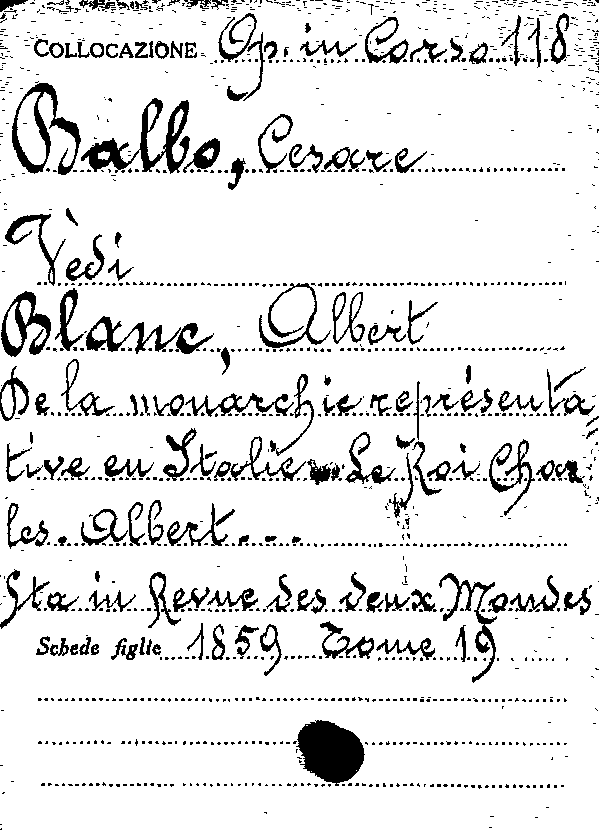 COLLOCAZIONE Op. in Corso 118
Balbo, Cesare
Vedi
Blanc, Albert
De la monarchie représenta
tive en Italie. Le Roi Char
les. Albert...
Sta in Revue des deux Mondes
Schede figlie 1859 Tome 19